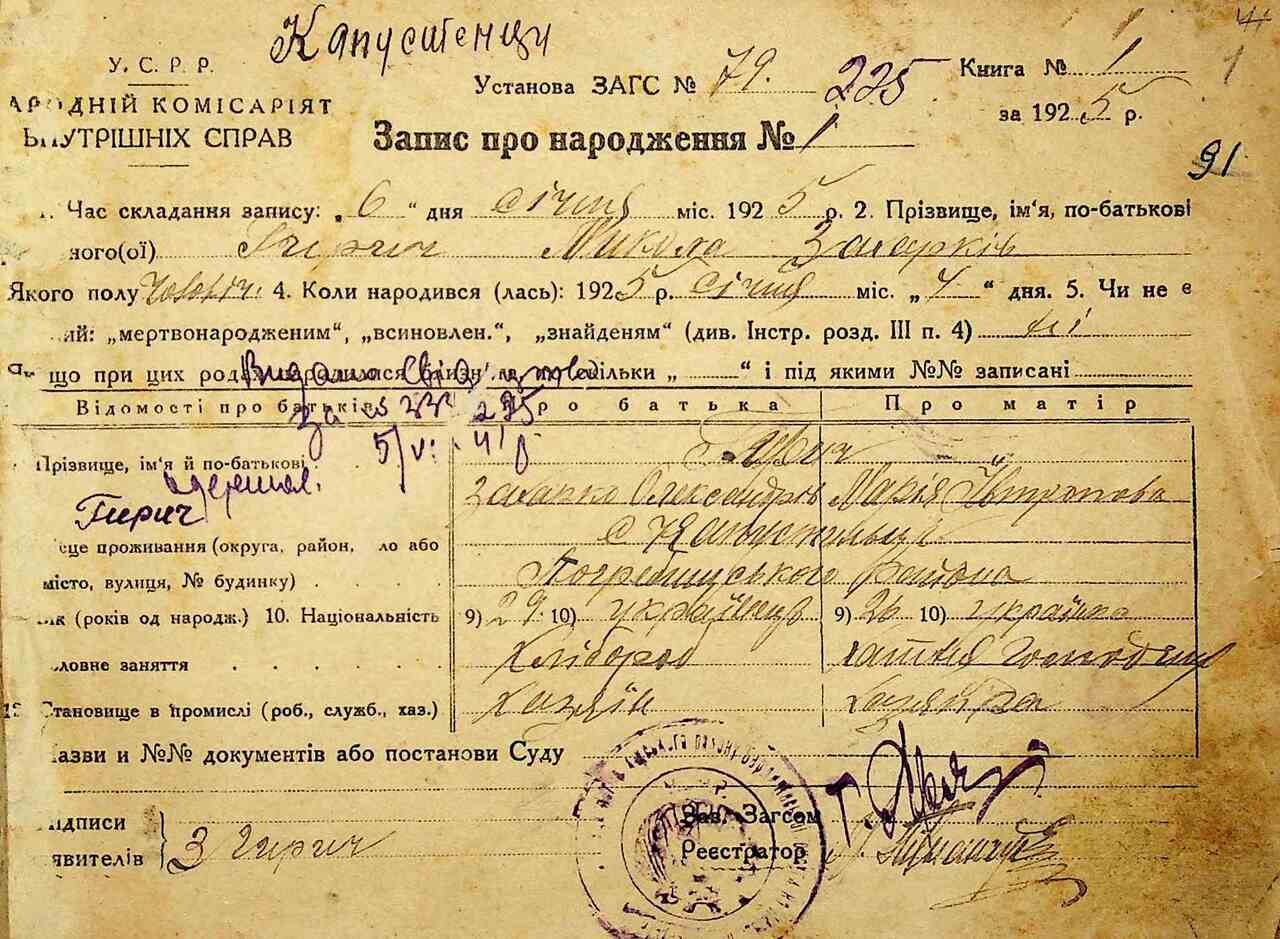 Капустенци
У. С. Р. Р.
АРОДНІЙ КОМІСАРІЯТ
ВНУТРІШНІХ СПРАВ
Установа ЗАГС № 79. 225
Книга № 1
за 1925 р.
Запис про народження № 1
91
Час складання запису: „6“ дня січня міс. 1925 р. 2. Прізвище, ім'я, по-батькові
ного(ої) Гирич Микола Захарків
Якого полу чоловіч. 4. Коли народився (лась): 1925 р. січня міс. „4“ дня. 5. Чи не є
ий: „мертвонародженим“, „всиновлен.“, „знайденям“ (див. Інстр. розд. III п. 4) ні
що при цих род близн кільки „ “ і під якими №№ записані
за 225
5/VI 41 р
Відомості про батьків
Про батька
Про матір
Прізвище, ім'я й по-батькові
Гирич
Гирич
Захарко Олександрів
Марія
сце проживання (округа, район, ло або
місто, вулиця, № будинку)
с
Погребищуського Района
ік (років од народж.) 10. Національність
9) 29 10) українець
9) 26 10) українка
ловне заняття
хлібороб
хатня
13 Становище в промислі (роб., служб., хаз.)
хазяїн
хазяйка
азви и №№ документів або постанови Суду
ідписи
явителів
З Гирич
Зав. Загсом
Реєстратор